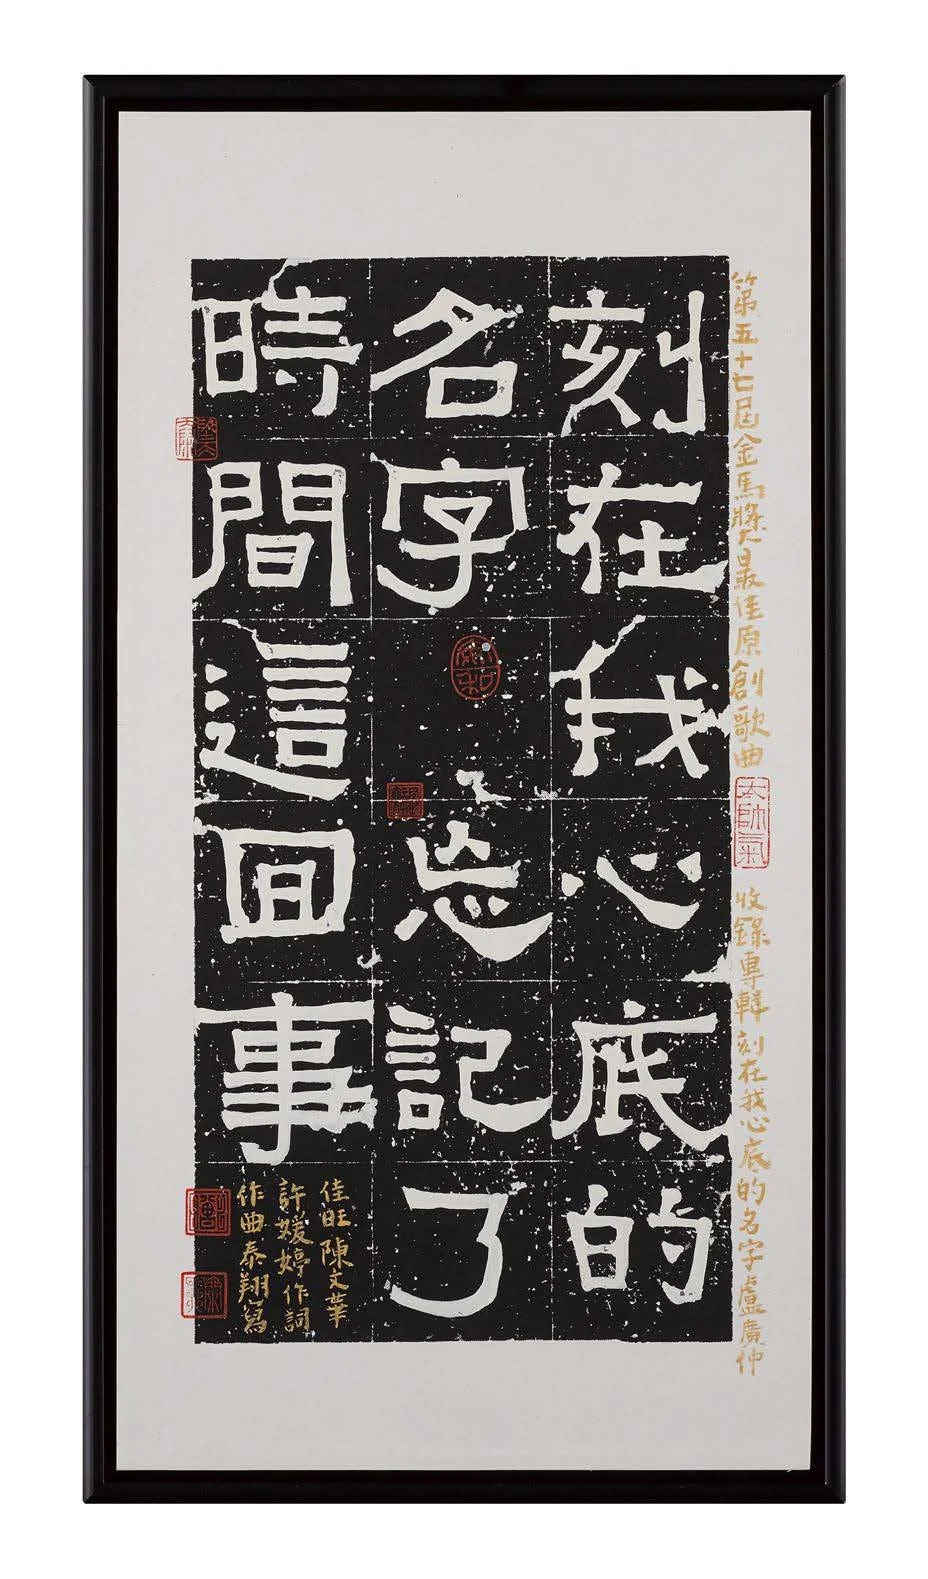 第五十七届金馬獎最佳原創歌曲
太帥氣
收錄專輯刻在我心底的名字盧廣仲
刻在我心底的
名字 忘記了
時間這回事
佳旺陳文華
許媛婷作詞
作曲泰翔寫